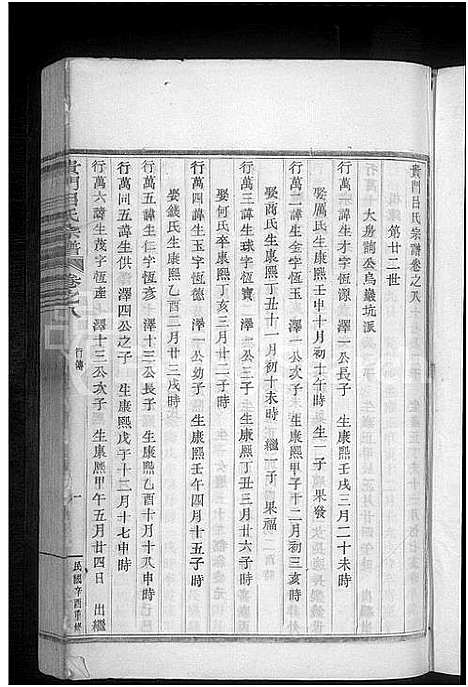 貴門呂氏宗譜卷之八
第廿二世
大房諵公烏巖坑派
行萬一諱生才字恆源 澤一公長子 生康熙壬戌三月二十未時
娶厲氏生康熙壬申十月初十午時 生一子 果發
行萬二諱生金字恆玉 澤一公次子 生康熙甲子十二月初三亥時
娶商氏生康熙丁丑十一月初十未時 繼一子 果福
行萬三諱生球字恆寶 澤一公三子 生康熙丁丑三月廿六子時
娶何氏卒康熙丁亥三月廿二子時
行萬四諱生玉字恆德 澤一公幼子 生康熙壬午四月十五子時
娶錢氏生康熙乙酉二月廿三戌時
行萬五諱生仁字恆彥 澤十三公長子 生康熙乙酉十月十八申時
行萬同五諱生供 澤四公之子 生康熙戊午十二月十七申時
行萬六諱生茂字恆産 澤十三公次子 生康熙甲午五月廿四日 出繼
貴門呂氏宗譜 卷之八
行傳
一
民國辛酉重修